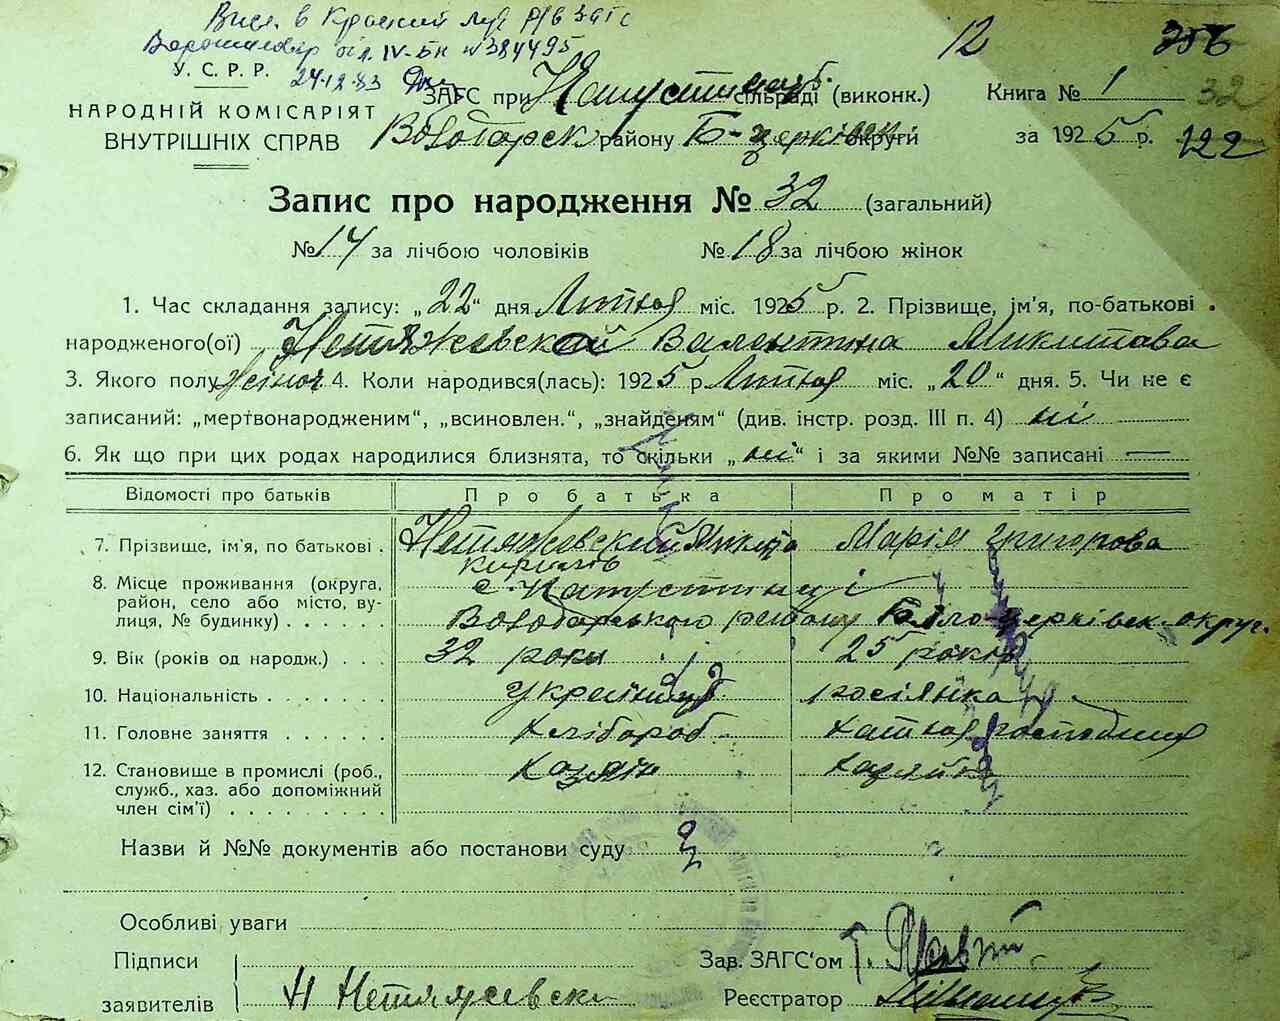 Вис. в Красний Луч р/в ЗАГС
Ворошиловгр. обл. IV-БК №384495
24.12.83
12
256
У. С. Р. Р.
НАРОДНІЙ КОМІСАРІЯТ
ВНУТРІШНІХ СПРАВ
ЗАГС при Капустинськ. сільраді (виконк.)
Книга № 1
32
Володарськ. району Б-церківськ. округи
за 1925 р.
122
Запис про народження № 32 (загальний)
№ 14 за лічбою чоловіків № 18 за лічбою жінок
1. Час складання запису: „22“ дня Лютого міс. 1925 р. 2. Прізвище, ім'я, по-батькові
народженого(ої) Нетяжевской Валентина Микитова
3. Якого полу жіноч 4. Коли народився(лась): 1925 р. Лютого міс. „20“ дня. 5. Чи не є
записаний: „мертвонародженим“, „всиновлен.“, „знайденям“ (див. інстр. розд. III п. 4) ні
6. Як що при цих родах народилися близнята, то скільки „ні“ і за якими №№ записані —
Відомості про батьків Про батька Про матір
7. Прізвище, ім'я, по батькові . Нетяжевский Микита Марія Григорова
Кирилів
8. Місце проживання (округа, с. Капустинці
район, село або місто, ву-
лиця, № будинку) . . . . . . Володарського району Біло-церківськ. округ.
9. Вік (років од народж.) . . . 32 роки 25 років
10. Національність . . . . . . . . українец росіянка
11. Головне заняття . . . . . . . Хлібороб хатня господиня
12. Становище в промислі (роб., хазяїн хазяйка
служб., хаз. або допоміжний
член сім'ї) . . . . . . . . .
Назви й №№ документів або постанови суду
Особливі уваги
Підписи
заявителів Н Нетяжевски
Зав. ЗАГС'ом
Реєстратор